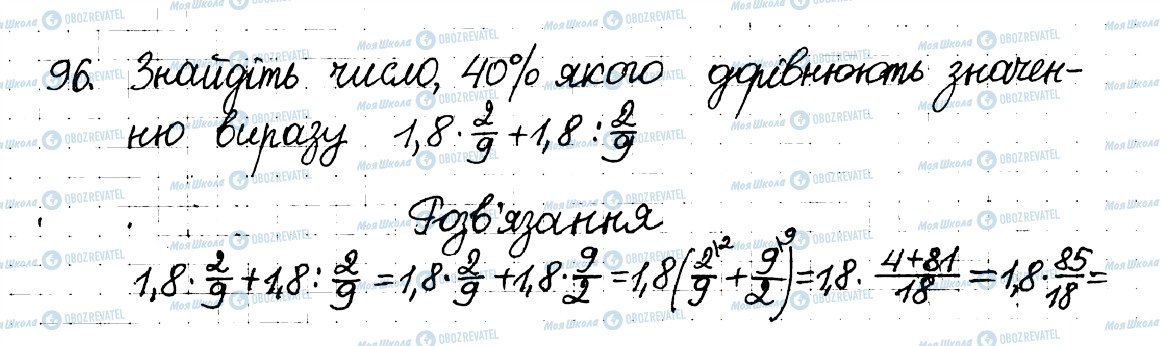 96. Знайдіть число, 40% якого дорівнюють значен-
ню виразу 1,8 · 2/9 + 1,8 : 2/9
Розв'язання
1,8 : 2/9 + 1,8 : 2/9 = 1,8 · 2/9 + 1,8 · 9/2 = 1,8 (2/9 \2 + 9/2 \9) = 1,8 · 4+81/18 = 1,8 · 85/18 =